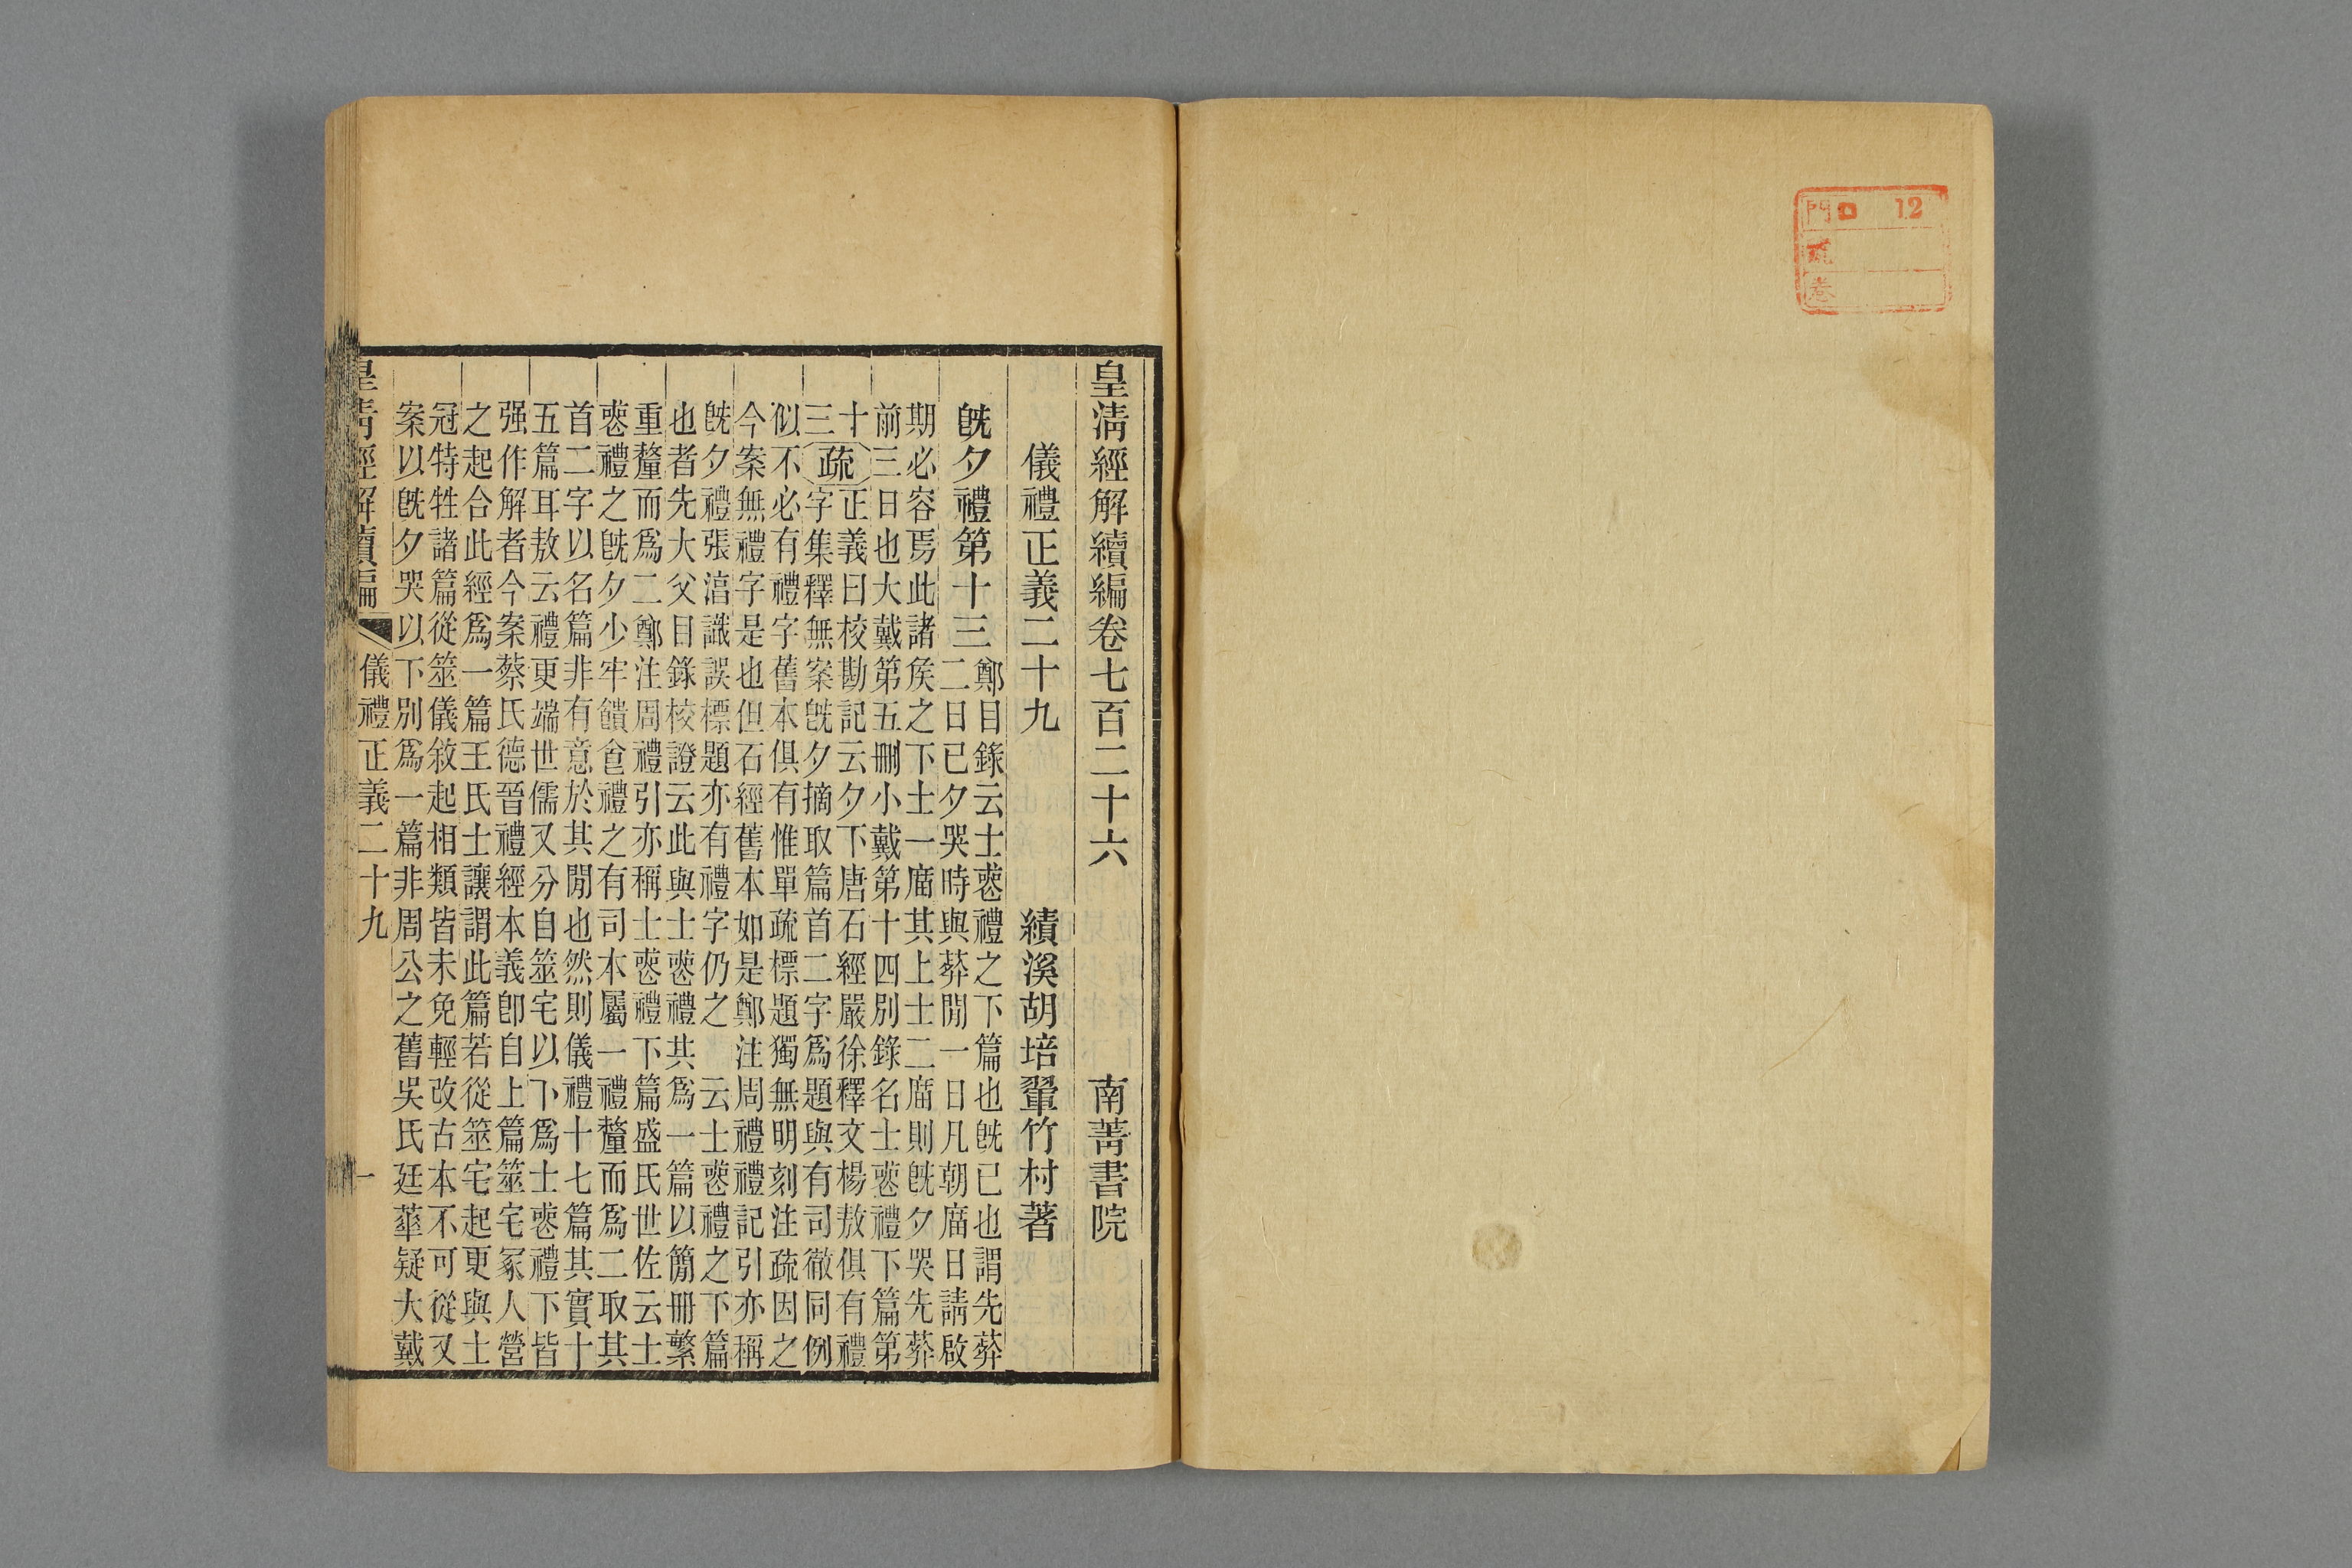 門 12
卷
皇淸經解續編卷七百二十六 南菁書院
儀禮正義二十九 績溪胡培翬竹村著
旣夕禮第十三
鄭目錄云士䘮禮之下篇也旣已也謂先葬
二日已夕哭時與葬閒一日凡朝廟日請啟
期必容焉此諸矦之下士一廟其上士二廟則旣夕哭先葬
前三日也大戴第五刪小戴第十四別錄名士䘮禮下篇第
十
三
疏
正義曰校勘記云夕下唐石經嚴徐釋文楊敖俱有禮
字集釋無案旣夕摘取篇首二字爲題與有司徹同例
似不必有禮字舊本俱有惟單疏標題獨無明刻注疏因之
今案無禮字是也但石經舊本如是鄭注周禮禮記引亦稱
旣夕禮張湻識誤標題亦有禮字仍之 云士䘮禮之下篇
也者先大父目錄校證云此與士䘮禮其爲一篇以簡冊繁
重釐而爲二鄭注周禮引亦稱士䘮禮下篇盛氏世佐云士
䘮禮之旣夕少牢饋食禮之有司本屬一禮釐而爲二取其
首二字以名篇非有意於其閒也然則儀禮十七篇其實十
五篇耳敖云禮更端世儒又分自筮宅以下爲士䘮禮下皆
强作解者今案蔡氏德晉禮經本義卽自上篇筮宅冢人營
之起合此經爲一篇王氏士讓謂此篇若從筮宅起更與士
冠特牲諸篇從筮儀敘起相類皆未免輕改古本不可從又
案以旣夕哭以下別爲一篇非周公之舊吳氏廷華疑大戴
皇淸經解續編 儀禮正義二十九 一